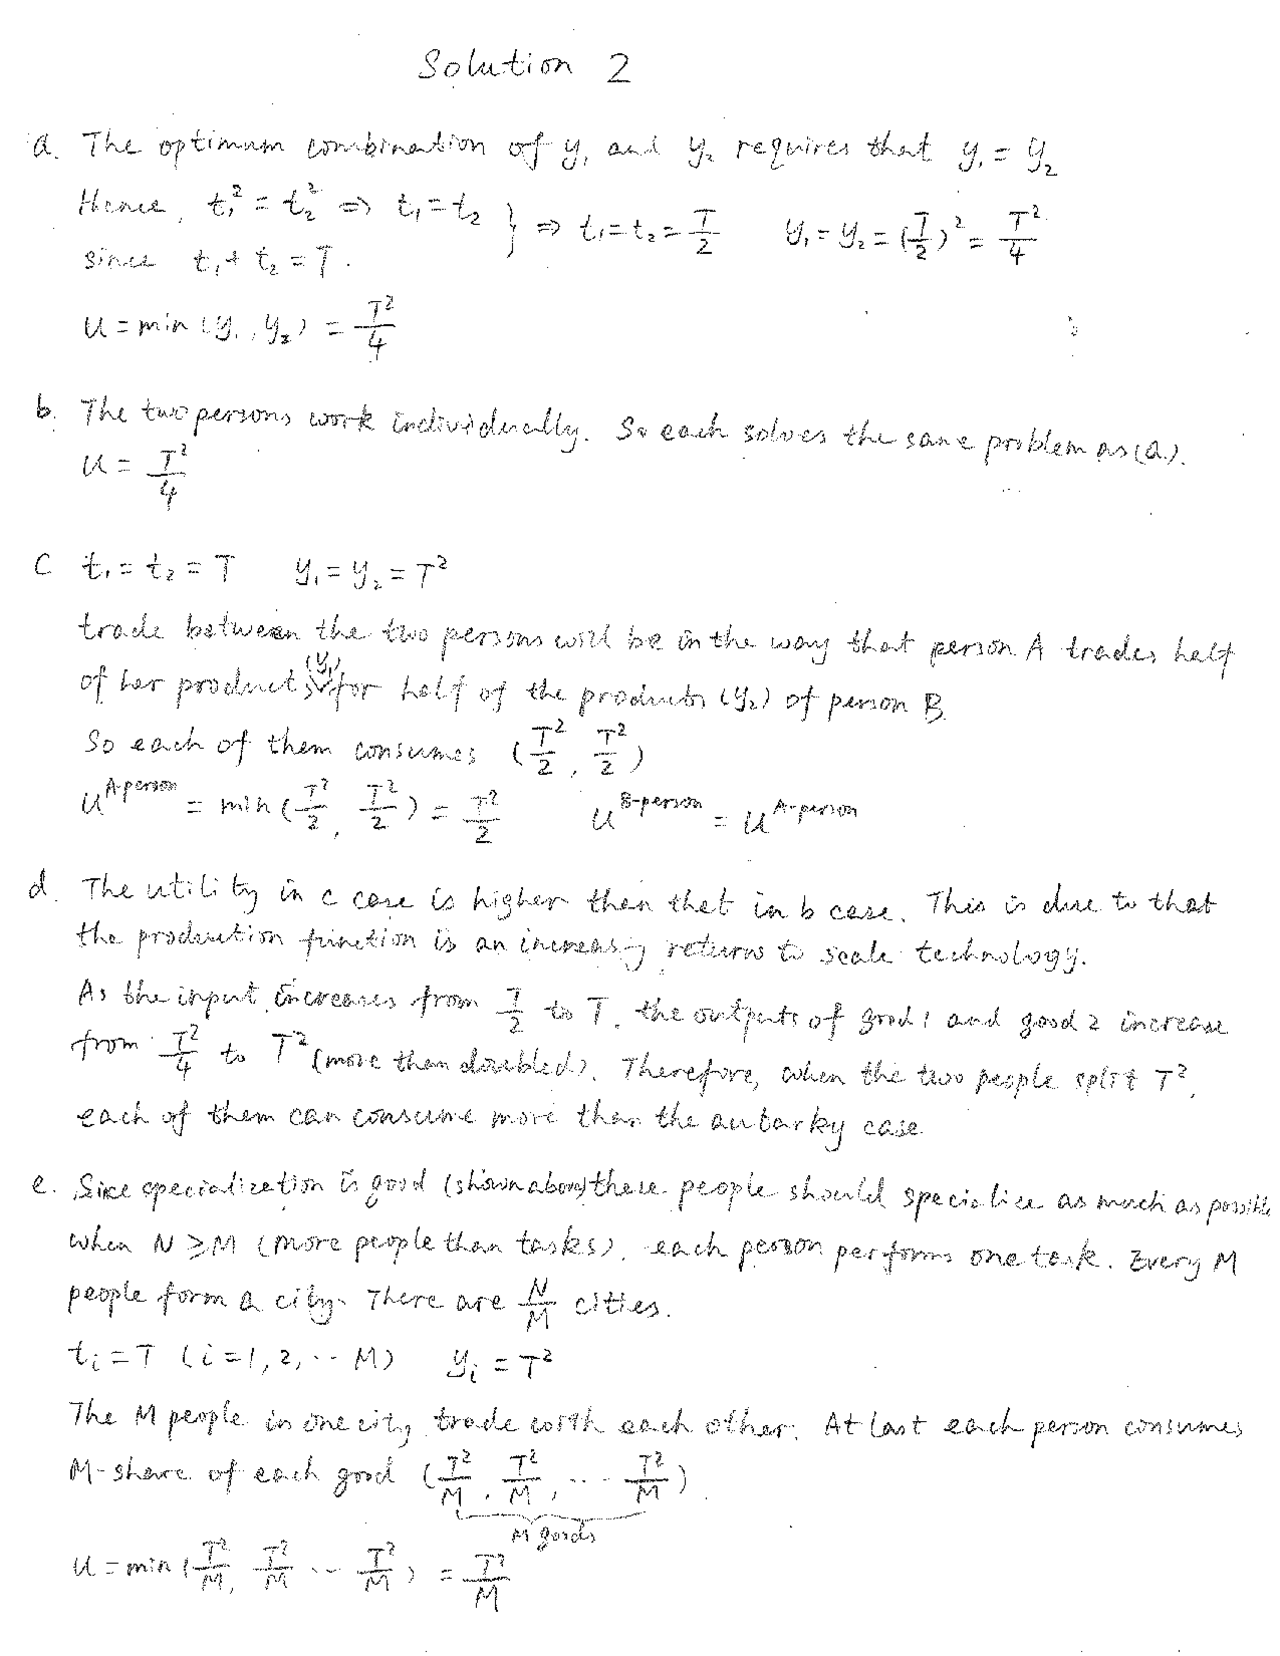 Solution 2
a. The optimum combination of y₁ and y₂ requires that y₁ = y₂
Hence, t₁² = t₂² ⇒ t₁ = t₂ } ⇒ t₁ = t₂ = T/2   y₁ = y₂ = (T/2)² = T²/4
since t₁ + t₂ = T.
u = min (y₁, y₂) = T²/4
b. The two persons work individually. So each solves the same problem as (a).
u = T²/4
C t₁ = t₂ = T   y₁ = y₂ = T²
trade between the two persons will be in the way that person A trades half
of her products (y₁) for half of the products (y₂) of person B.
So each of them consumes (T²/2, T²/2)
u^A-person = min (T²/2, T²/2) = T²/2   u^B-person = u^A-person
d. The utility in c case is higher than that in b case. This is due to that
the production function is an increasing returns to scale technology.
As the input increases from T/2 to T, the outputs of good 1 and good 2 increase
from T²/4 to T² (more than doubled). Therefore, when the two people split T²,
each of them can consume more than the autarky case
e. Sice specialization is good (shown above) these people should specialize as much as possible
when N ≥ M (more people than tasks), each person performs one task. Every M
people form a city. There are N/M cities.
tᵢ = T (i = 1, 2, ·· M)   yᵢ = T²
The M people in one city trade with each other. At last each person consumes
M-share of each good (T²/M, T²/M, ·· T²/M)
M goods
u = min (T²/M, T²/M ·· T²/M) = T²/M